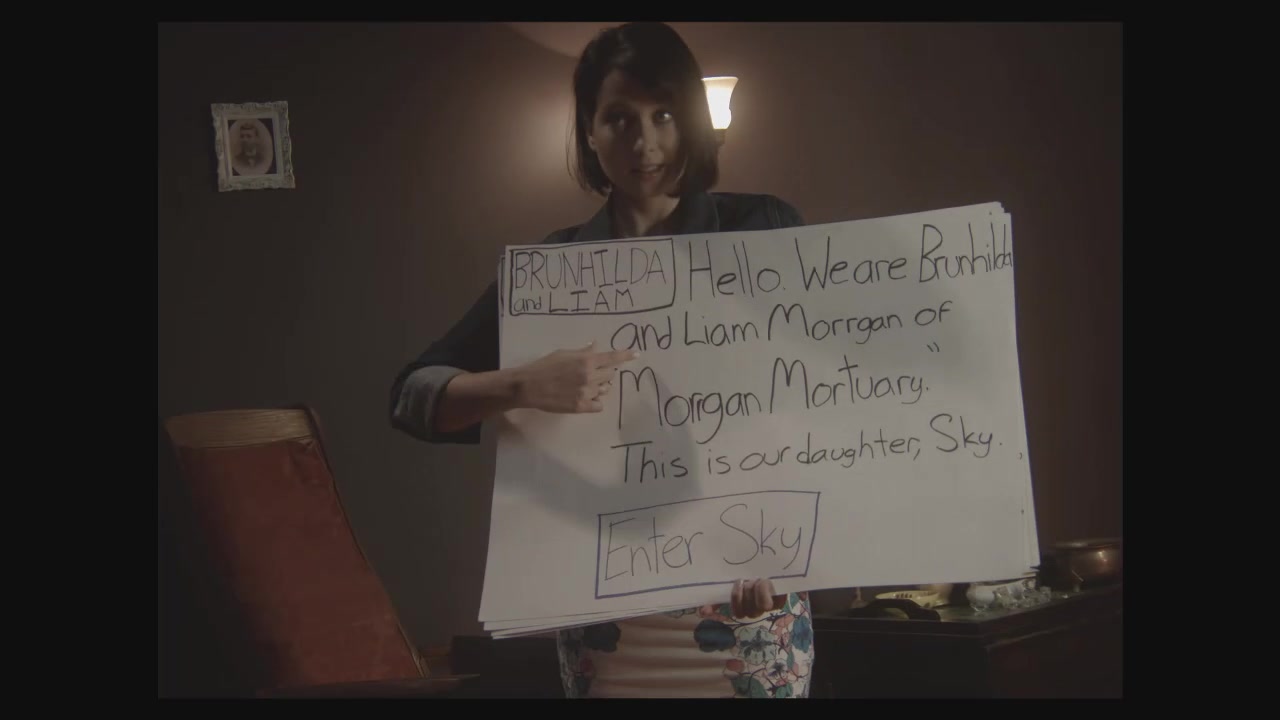 BRUNHILDA
and LIAM
Hello. We are Brunhilda
and Liam Morrgan of
"Morrgan Mortuary."
This is our daughter, Sky.
Enter Sky